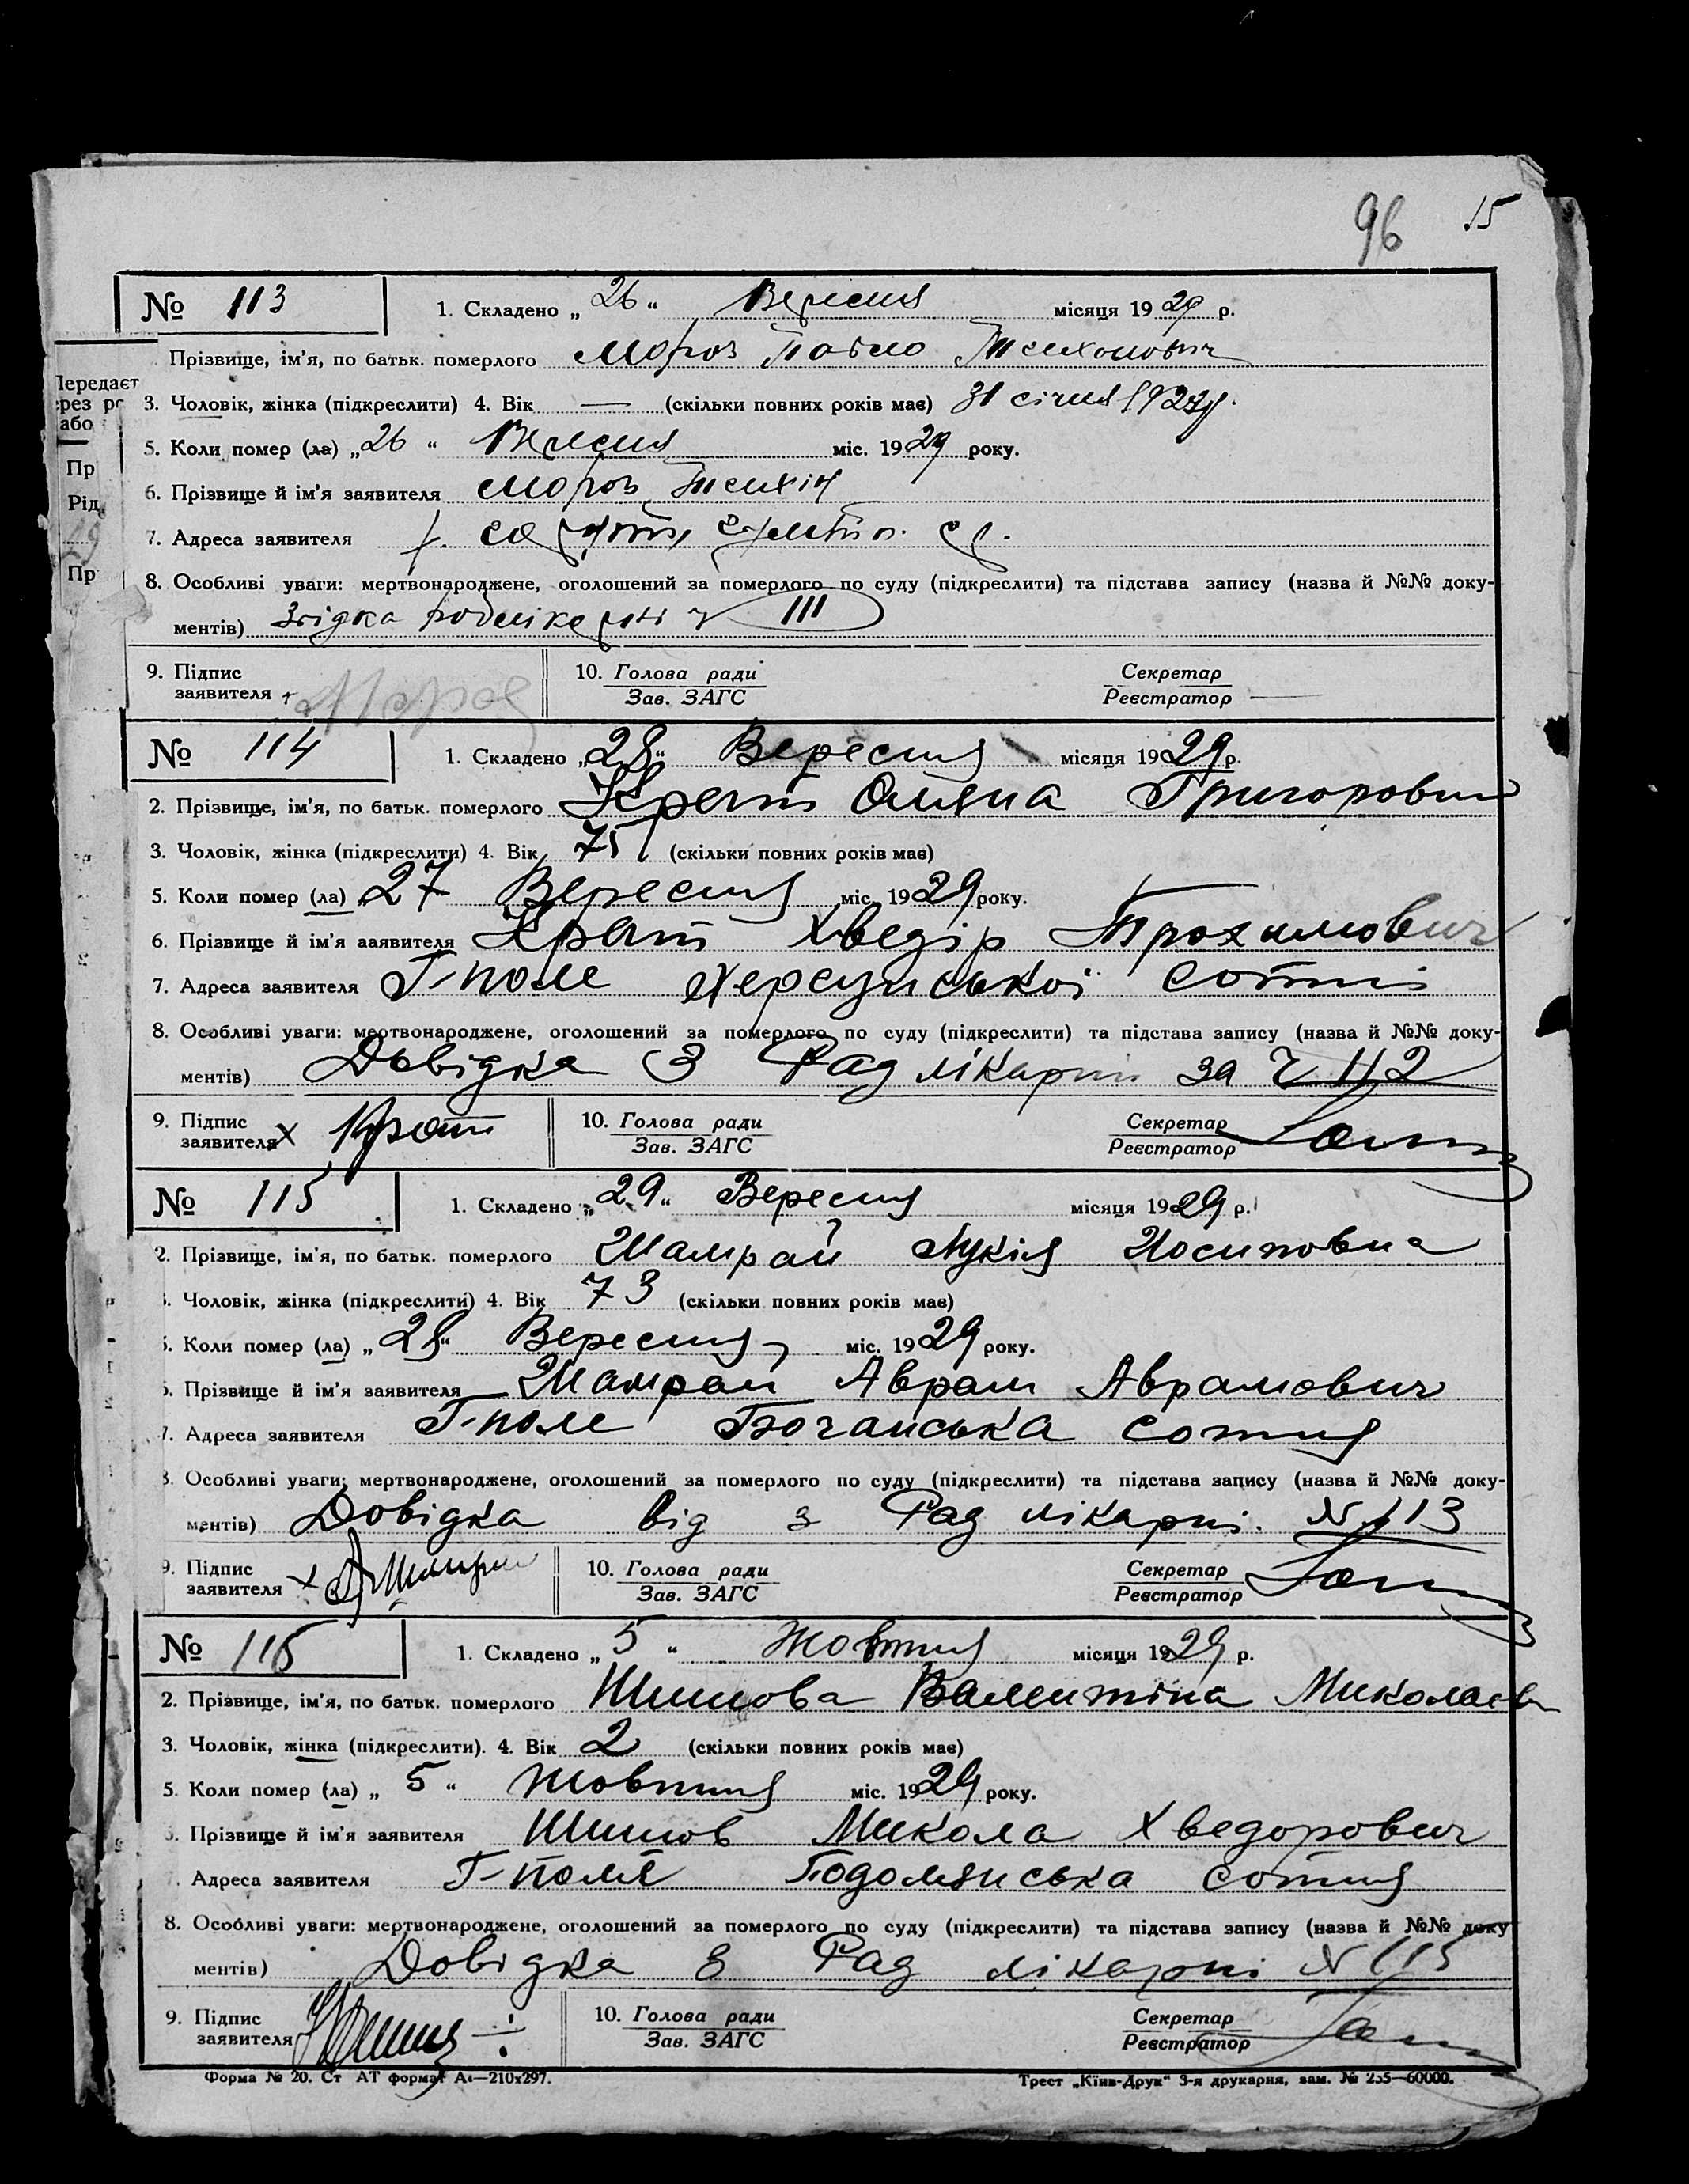 96 15
№ 113 1. Складено „ 26 “ Вересня місяця 19 29 р.
Прізвище, ім'я, по батьк. померлого Мороз Павло Тихонович
Передает
ерез ро
або
3. Чоловік, жінка (підкреслити) 4. Вік — (скільки повних років має) 31 січня 1927 р.
5. Коли помер (ла) „ 26 “ Вересня міс. 19 29 року.
Пр
6. Прізвище й ім'я заявителя Мороз Тихін
Рід.
7. Адреса заявителя
19
Пр
8. Особливі уваги: мертвонароджене, оголошений за померлого по суду (підкреслити) та підстава запису (назва й №№ доку-
ментів) III
9. Підпис заявителя + Мороз 10. Голова ради Зав. ЗАГС Секретар Реєстратор
№ 114 1. Складено „ 28 “ Вересня місяця 19 29 р.
2. Прізвище, ім'я, по батьк. померлого Крат Оляна Григоровна
3. Чоловік, жінка (підкреслити) 4. Вік 75 (скільки повних років має)
5. Коли помер (ла) „ 27 Вересня міс. 19 29 року.
6. Прізвище й ім'я заявителя Крат Хведір Трохимович
7. Адреса заявителя Г-поле Херсунської сотні
8. Особливі уваги: мертвонароджене, оголошений за померлого по суду (підкреслити) та підстава запису (назва й №№ доку-
ментів) Довідка З Рад лікарні за Ч 112
9. Підпис заявителя х Крат 10. Голова ради Зав. ЗАГС Секретар Реєстратор
№ 115 1. Складено „ 29 “ Вересня місяця 19 29 р.
2. Прізвище, ім'я, по батьк. померлого Шамрай Лукія Йосиповна
3. Чоловік, жінка (підкреслити) 4. Вік 73 (скільки повних років має)
5. Коли помер (ла) „ 28 “ Вересня міс. 19 29 року.
6. Прізвище й ім'я заявителя Шамрай Аврам Аврамович
7. Адреса заявителя Г-поле Бочанська сотня
8. Особливі уваги: мертвонароджене, оголошений за померлого по суду (підкреслити) та підстава запису (назва й №№ доку-
ментів) Довідка від з Рад лікарні. № 113
9. Підпис заявителя х А Шамрай 10. Голова ради Зав. ЗАГС Секретар Реєстратор
№ 116 1. Складено „ 5 “ Жовтня місяця 19 29 р.
2. Прізвище, ім'я, по батьк. померлого Шишова Валентіна Миколаєв
3. Чоловік, жінка (підкреслити). 4. Вік 2 (скільки повних років має)
5. Коли помер (ла) „ 5 “ Жовтня міс. 19 29 року.
6. Прізвище й ім'я заявителя Шишов Микола Хведорович
7. Адреса заявителя Г-поля Подолянська сотня
8. Особливі уваги: мертвонароджене, оголошений за померлого по суду (підкреслити) та підстава запису (назва й №№ доку
ментів) Довідка З Рад лікарні № 115
9. Підпис заявителя 10. Голова ради Зав. ЗАГС Секретар Реєстратор
Форма № 20. Ст АТ формат А4—210х297. Трест „Київ-Друк“ 3-я друкарня, зам. № 255—60000.